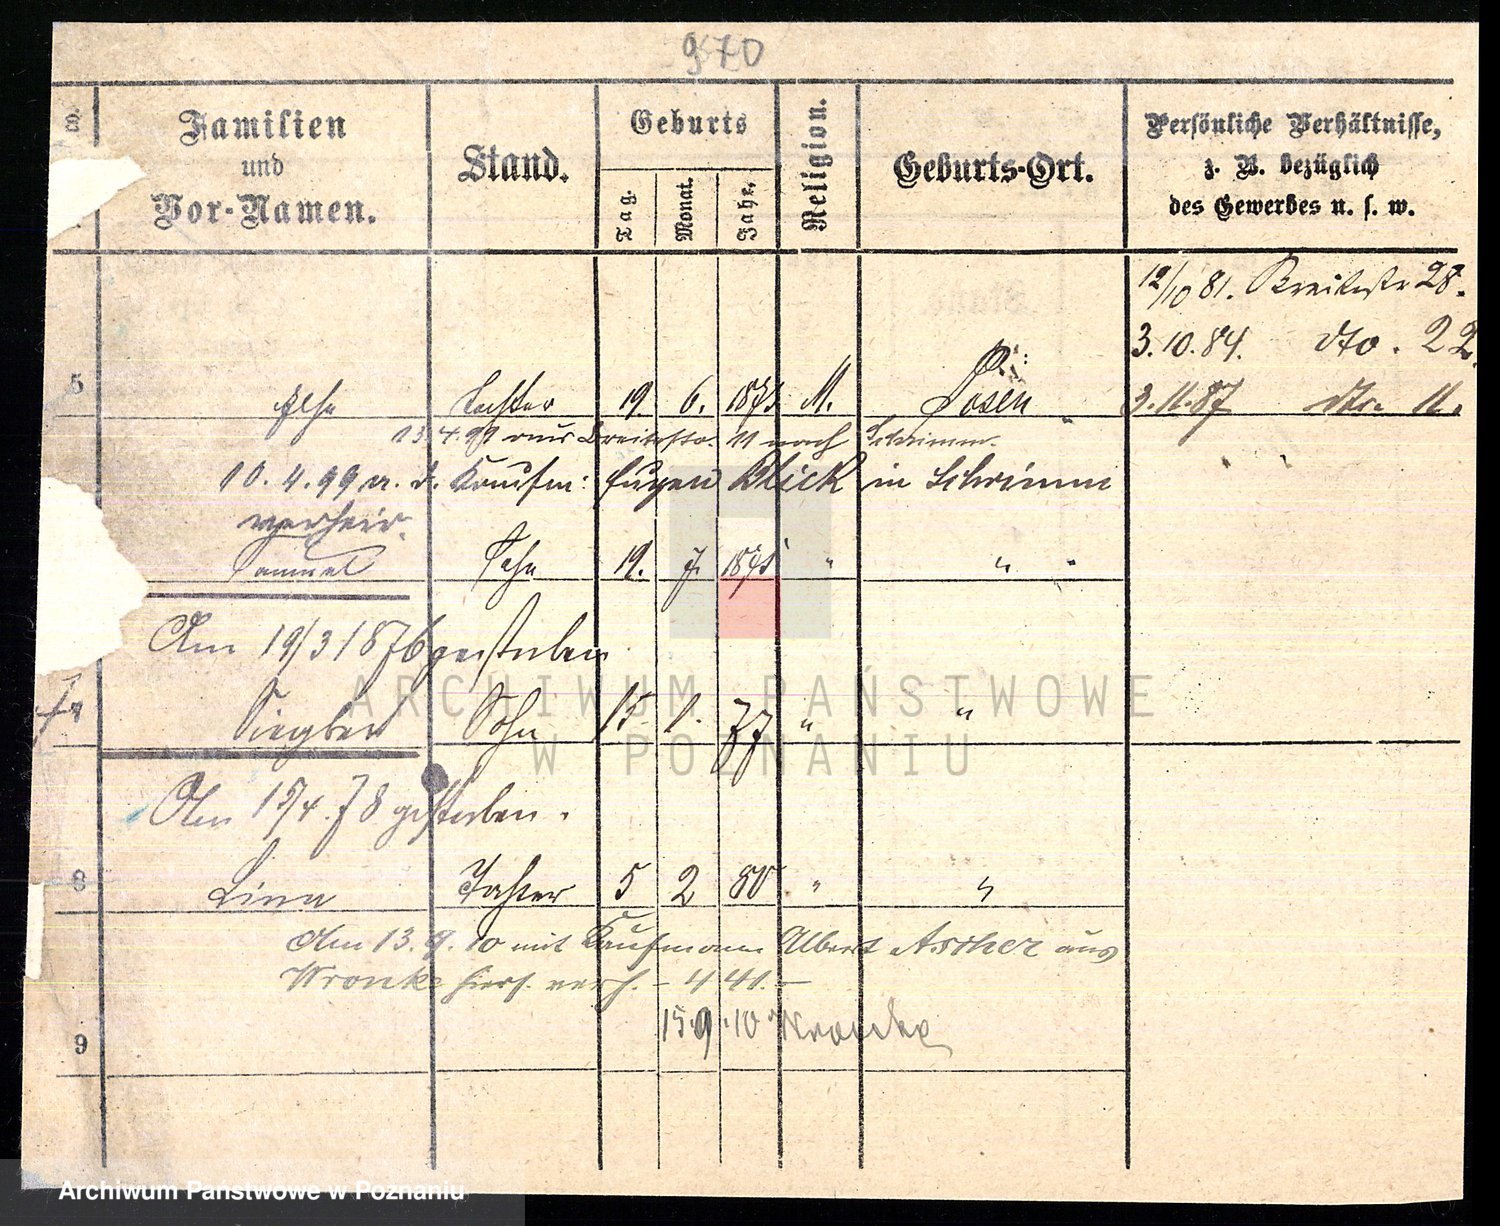 970
No.
Familien
und
Vor-Namen.
Stand.
Geburts
Tag.
Monat.
Jahr.
Religion.
Geburts-Ort.
Persönliche Verhältnisse,
z. B. bezüglich
des Gewerbes u. s. w.
12/10 81. Breitestr 28.
3. 10. 84. dto. 22.
3. 11. 87 dto. 11.
5 Tochter 19 6. 187 M. Posen
13. 4. 99 aus Breitestr. 11 nach Schrimm.
10. 4. 99 m. d. Kaufm: Eugen Blick in Schrimm
verheir.
Samuel Sohn 19. 7. 1875 " " "
Am 19/3 1876 gestorben
7 Siegbert Sohn 15. 1. 77 " "
Am 15/4. 78 gestorben.
8 Lina Tochter 5 2 80 " "
Am 13. 9. 10 mit Kaufmann Albert Ascher aus
Wronke hiers. verh. - 441. -
15. 9. 10 Wronke
9
ARCHIWUM PAŃSTWOWE
W POZNANIU
Archiwum Państwowe w Poznaniu